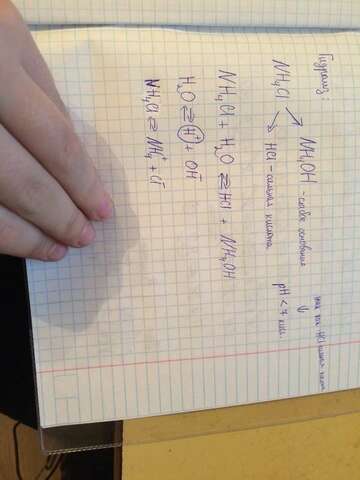 Гидролиз:
NH₄Cl
NH₄OH - слабое основание
HCl - сильная кислота
так как HCl сильная
⇓
pH < 7 кисл.
NH₄Cl + H₂O ⇄ HCl + NH₄OH
H₂O ⇄ H⁺ + OH⁻
NH₄Cl ⇄ NH₄⁺ + Cl⁻